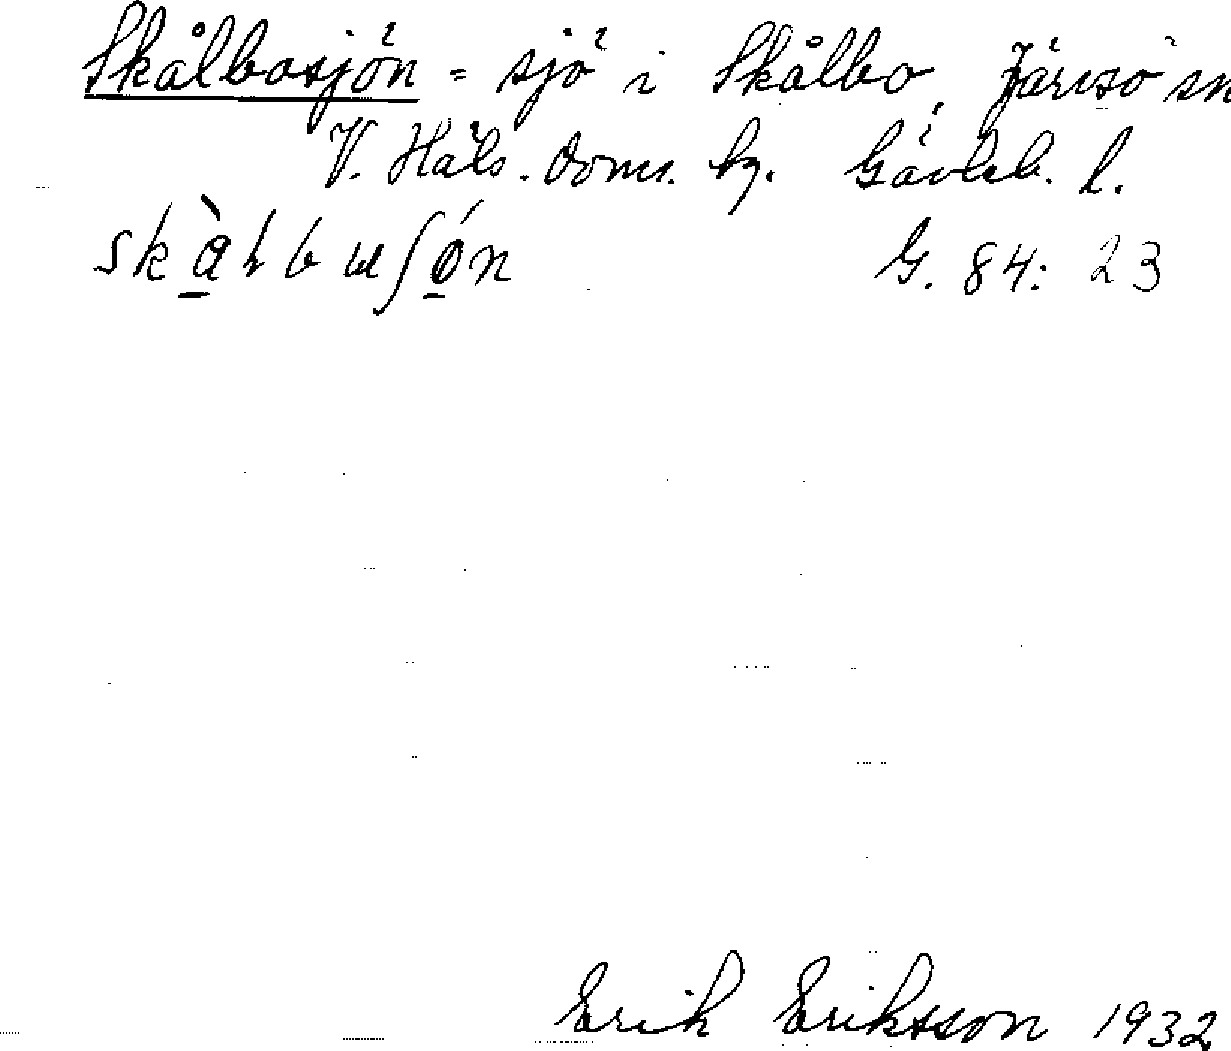 Skålbosjön = sjö i Skålbo, Järvsö sn
V. Häls. doms. hg. Gävleb. l.
G. 84: 23
Erik Eriksson 1932